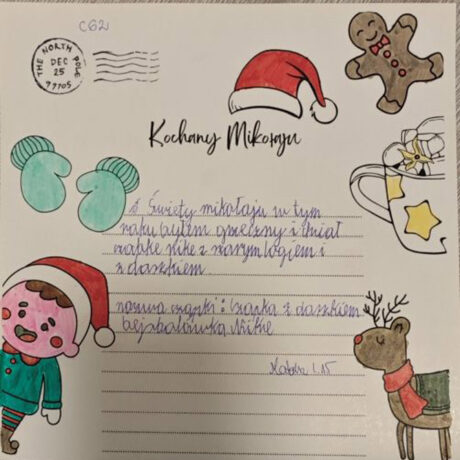 C62
THE NORTH POLE
DEC
25
77705
Kochany Mikołaju
Święty mikołaju w tym
roku byłem grzeczny i chciał
czapke nike z szarym logiem i
z daszkiem
nazwa czapki: Czapka z daszkiem
bejsbolówka Nike